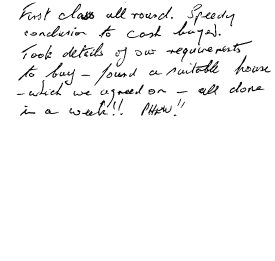 First class all round. Speedy
conclusion to cash buyer.
Took details of our requirements
to buy - found a suitable house
- which we agreed on - all done
in a week!! PHEW!!